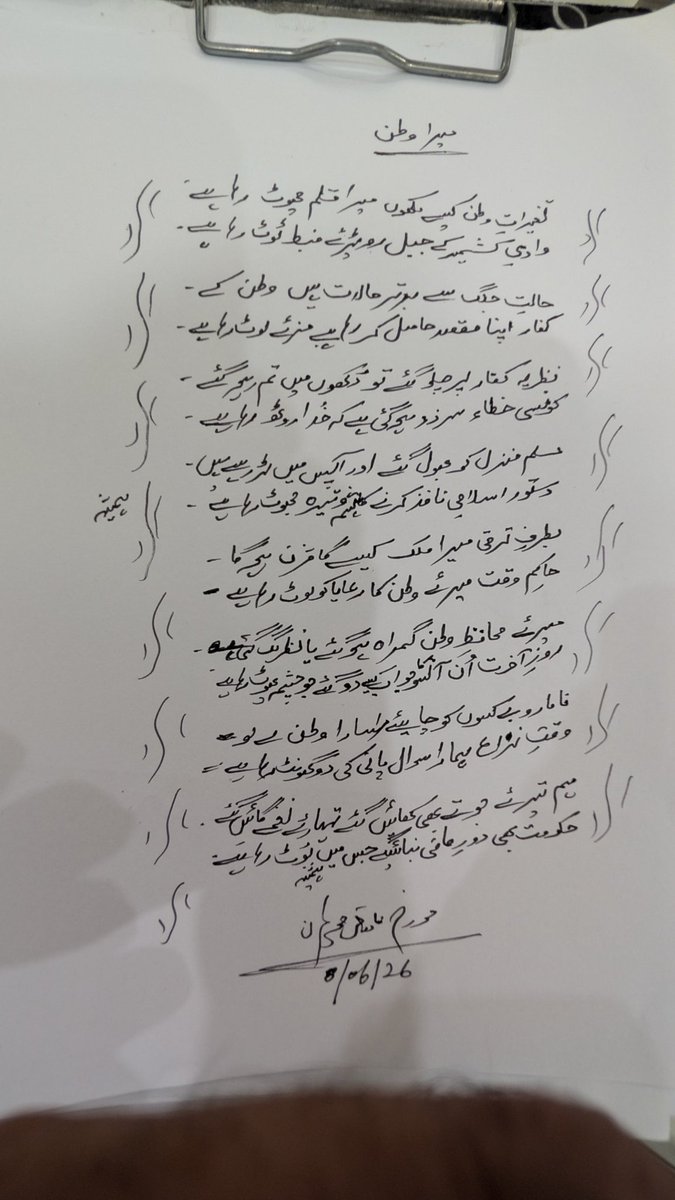 میرا وطن
تغیراتِ وطن کیسے لکھوں میرا قلم چھوٹ رہا ہے۔
وادیِ کشمیر کے جبیل رو پڑئے ضبط ٹوٹ رہا ہے۔
حالتِ جنگ سے بدتر حالات ہیں وطن کے۔
کفار اپنا مقصد حاصل کر رہا ہے مزئے لوٹ رہا ہے۔
نظریہ کفار پر چلے گئے تو ٹکڑوں میں تم ہو گئے۔
کونسی خطاء سرزد ہو گئی ہے کہ خُدا روٹھ رہا ہے۔
مسلم منزل کو بھول گئے اور آپس میں لڑ رہے ہیں۔
دستور اسلامی نافذ کرنے چھوٹ رہا ہے۔
ہمیشہ
بطرفِ ترقی میرا ملک کیسے گامزن ہو گا۔
حاکمِ وقت میرئے وطن کا رعایا کو لوٹ رہا ہے۔
میرئے محافظِ وطن گمراہ ہو گئے یا نظر لگ گئی۔
روزِ آخرت اُن کو جواب کیسے دو گئے جو چشم پھوٹ رہا ہے۔
کو چاہئے سارا وطن لے لو۔
وقتِ نزاع ہمارا سوال پانی کی دو گھونٹ رہا ہے۔
ہم تیرئے جوتے بھی کھائیں گئے تمہارئے نغمے گائیں گئے۔
حکومت بھی دورِ مافی جس میں رہا ہے۔
مورخہ
/06/26